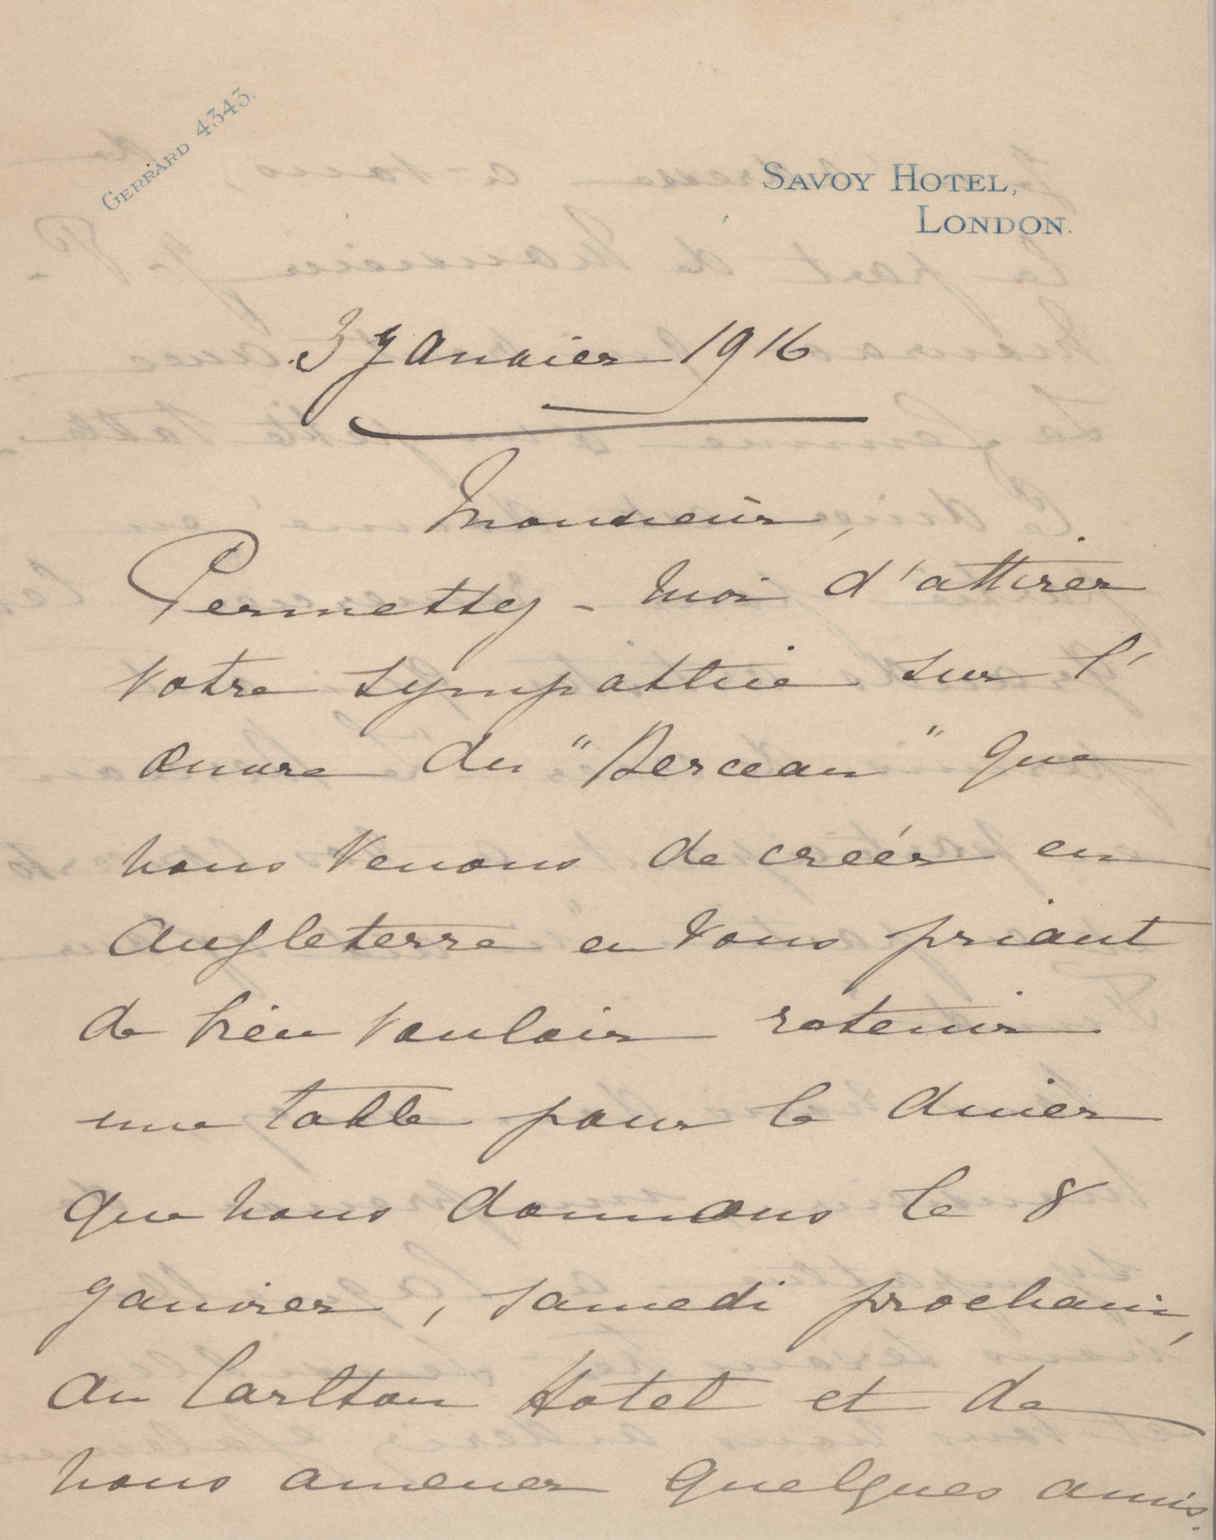 Gerrard 4343.
Savoy Hotel,
London.
3 Janvier 1916
Monsieur,
Permettez-moi d'attirer
votre sympathie sur l'
œuvre du "Berceau" que
nous venons de créer en
Angleterre en vous priant
de bien vouloir retenir
une table pour le diner
que nous donnons le 8
Janvier, samedi prochain,
au Carlton Hotel et de
nous amener quelques amis.